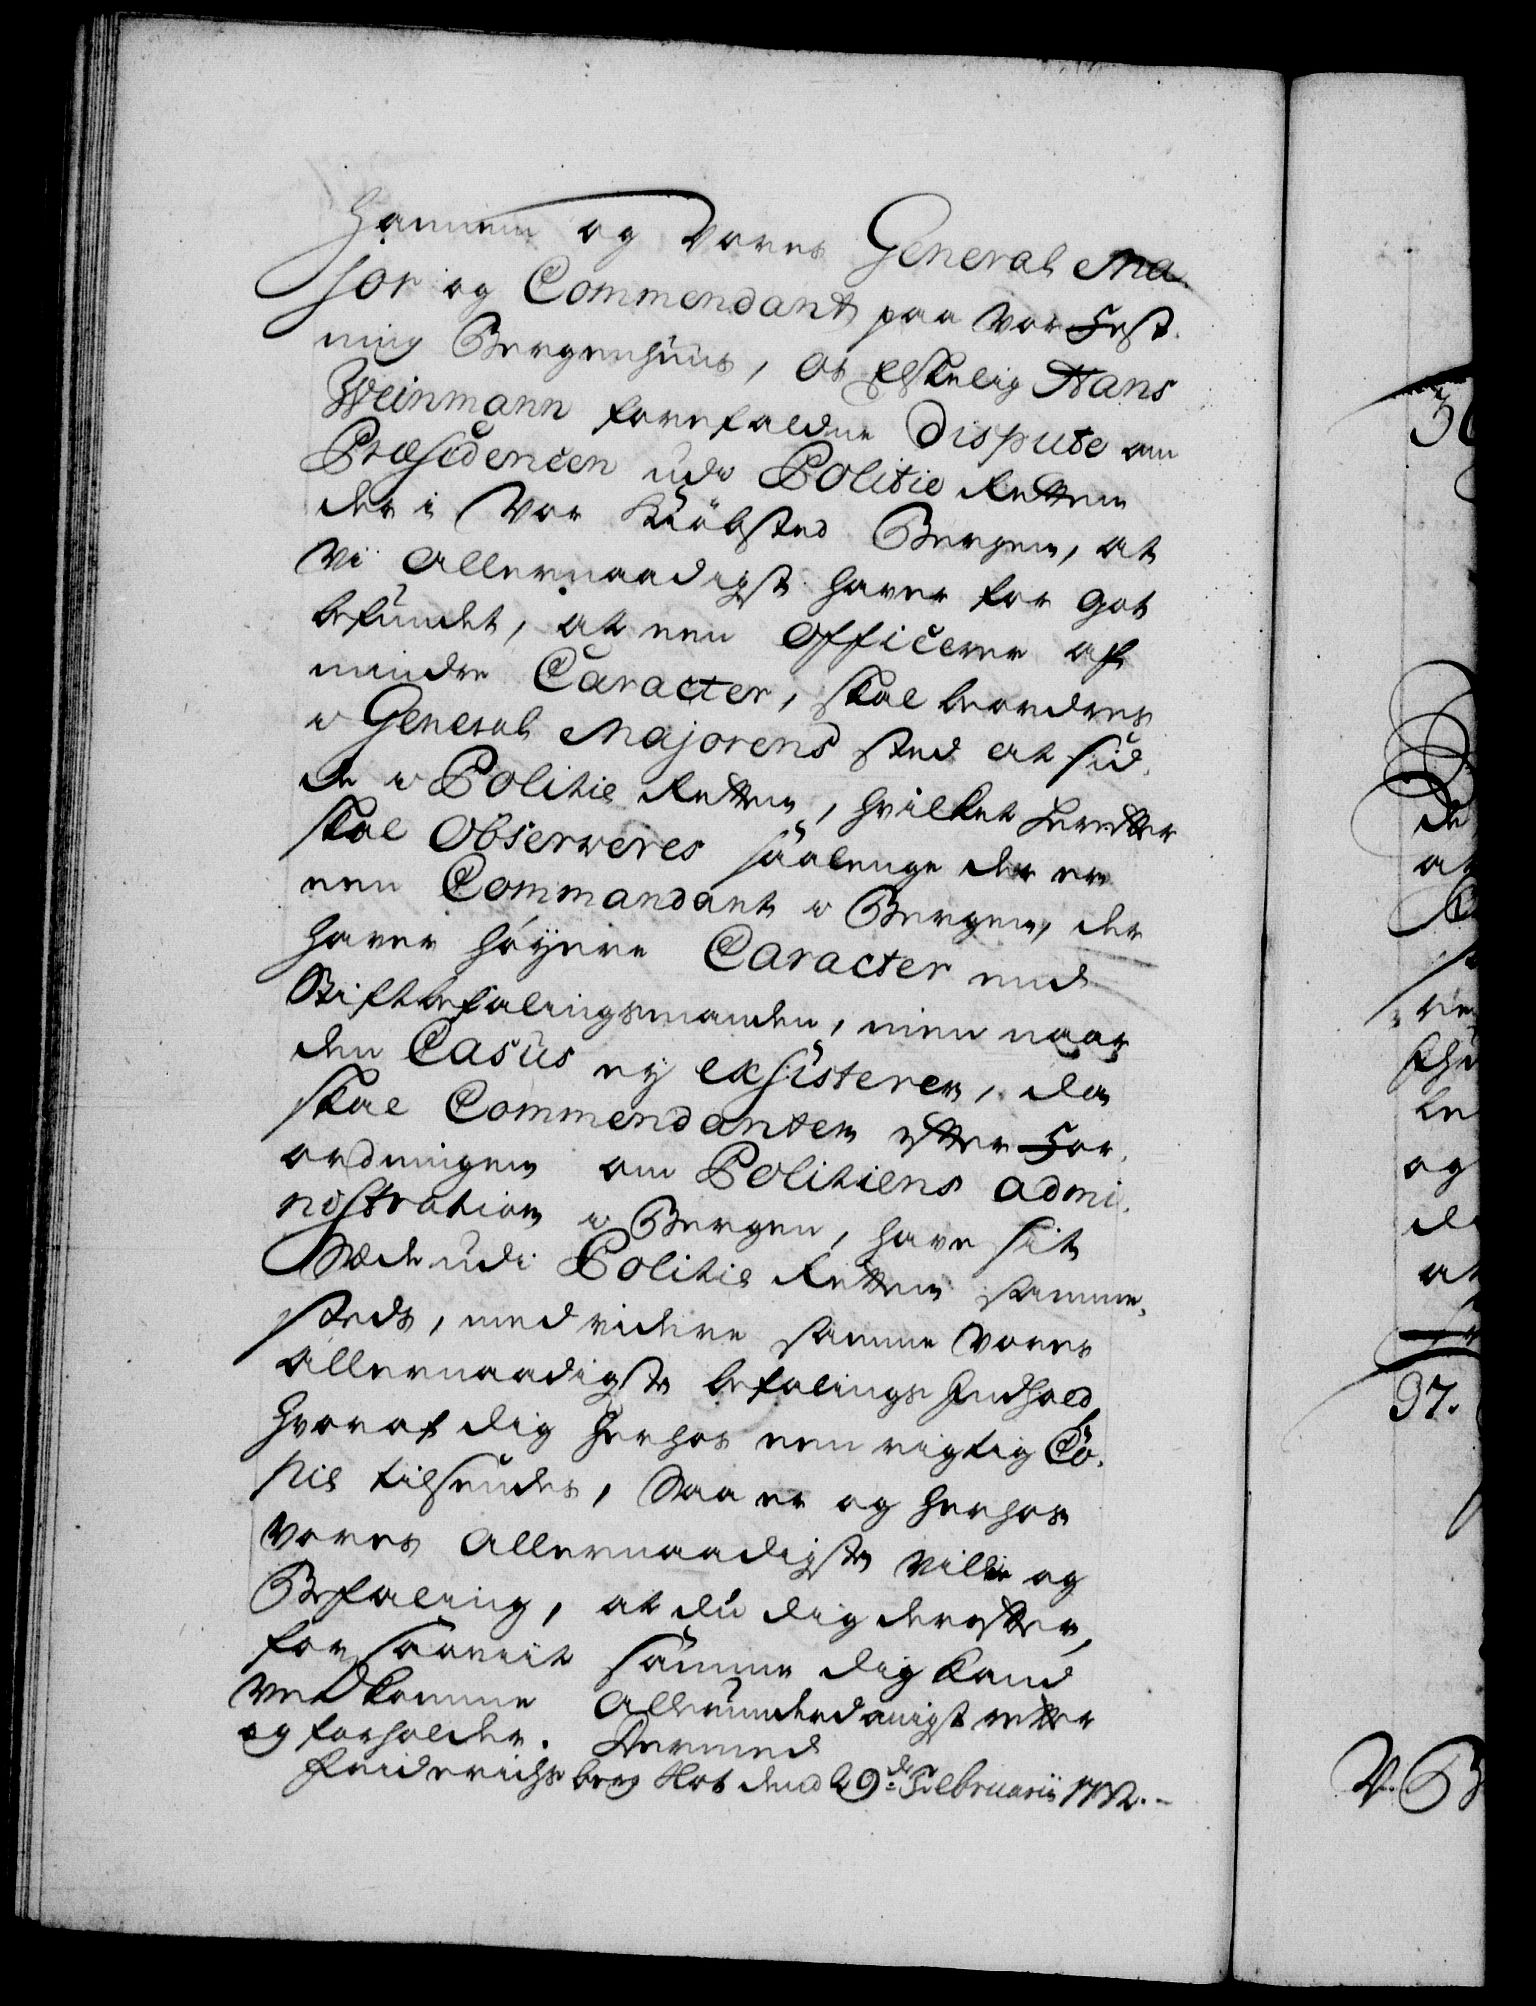 hannem og vores General Ma-
jor og Commendant paa vor Fest-
ning Bergenhuus, Os Elskelig Hans
Weinmann forefaldne Dispute om
Præsidencen udi Politie Retten
der i Vor Kiøbsted Bergen, at
Vi Allernaadigst haver for got
befundet, at een Officerer af
mindre Caracter, skal beordres
i General Majorens sted at sid-
de i Politie Retten, hvilket herefter
skal Observeres saalenge der er
een Commandant i Bergen, der
haver høyere Caracter end
Stiftbefalingsmanden, men naar
den Casus ey exsisterer, da
skal Commendanten efter For-
ordningen om Politiens admi-
nistration i Bergen, have sit
Sæde udi Politie Retten samme-
steds, med videre samme vores
allernaadigste befalings Indhold
hvoraf dig herhos een rigtig Co-
pie tilsendes, Saa er og herhos
vores Allernaadigste villie og
Befaling, at du dig derefter,
for saavit samme dig kand
vedkomme Allerunderdanigst retter
og forholder. Dermed
Friderichsberg Slot dend 29de Februarii 1732.-
36
de
at
og
at
37.